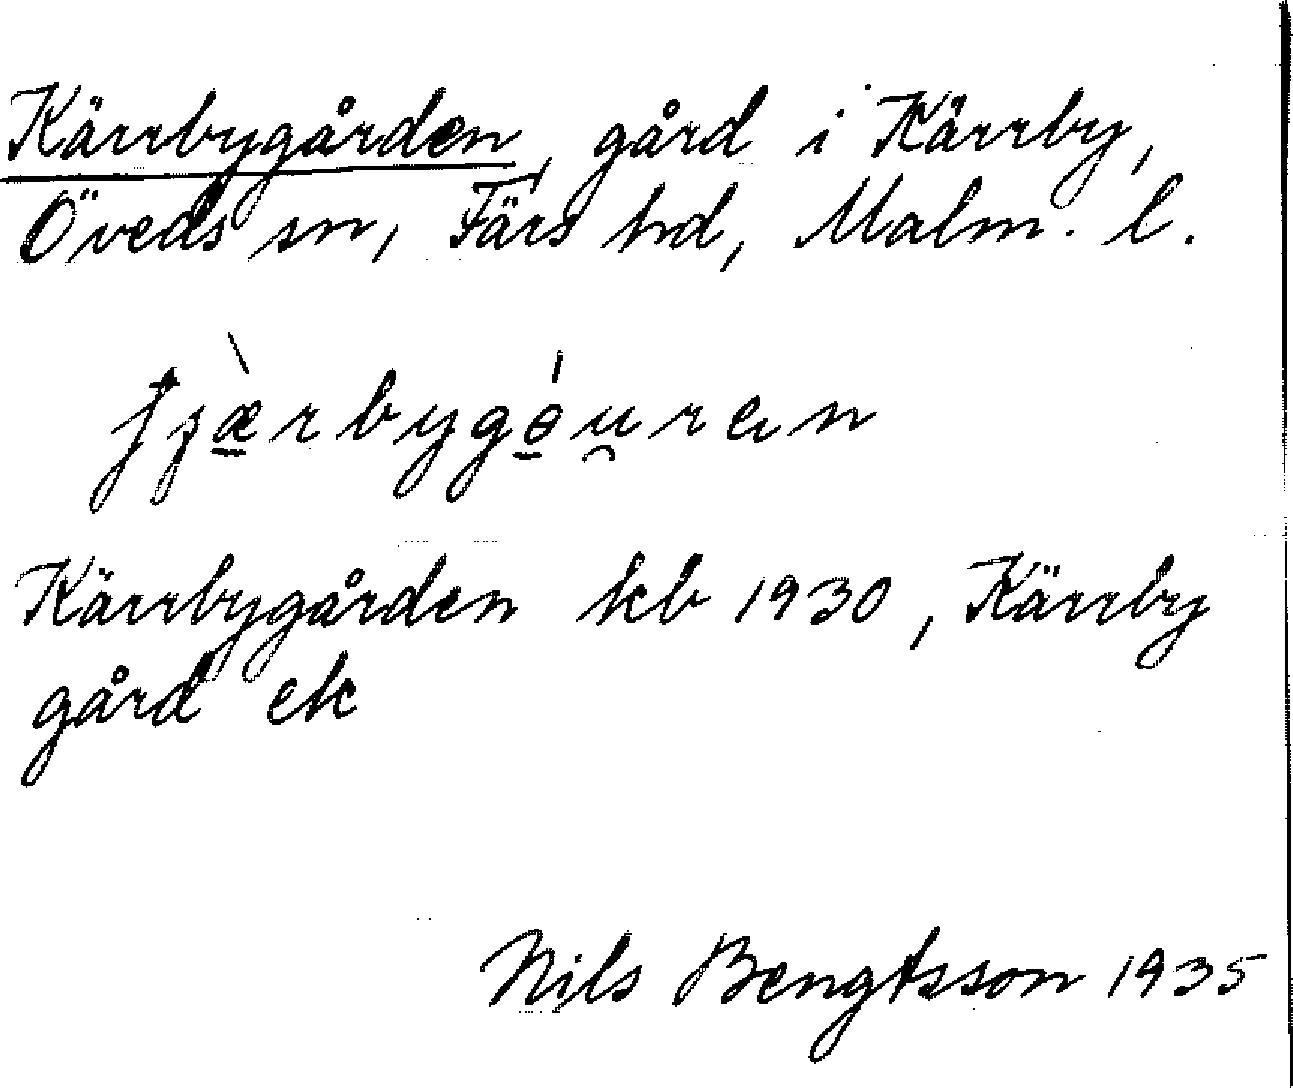 Kärrbygården, gård i Kärrby,
Öveds sn, Färs hd, Malm. l.
Kärrbygården kb 1930, Kärrby
gård ek
Nils Bengtsson 1935